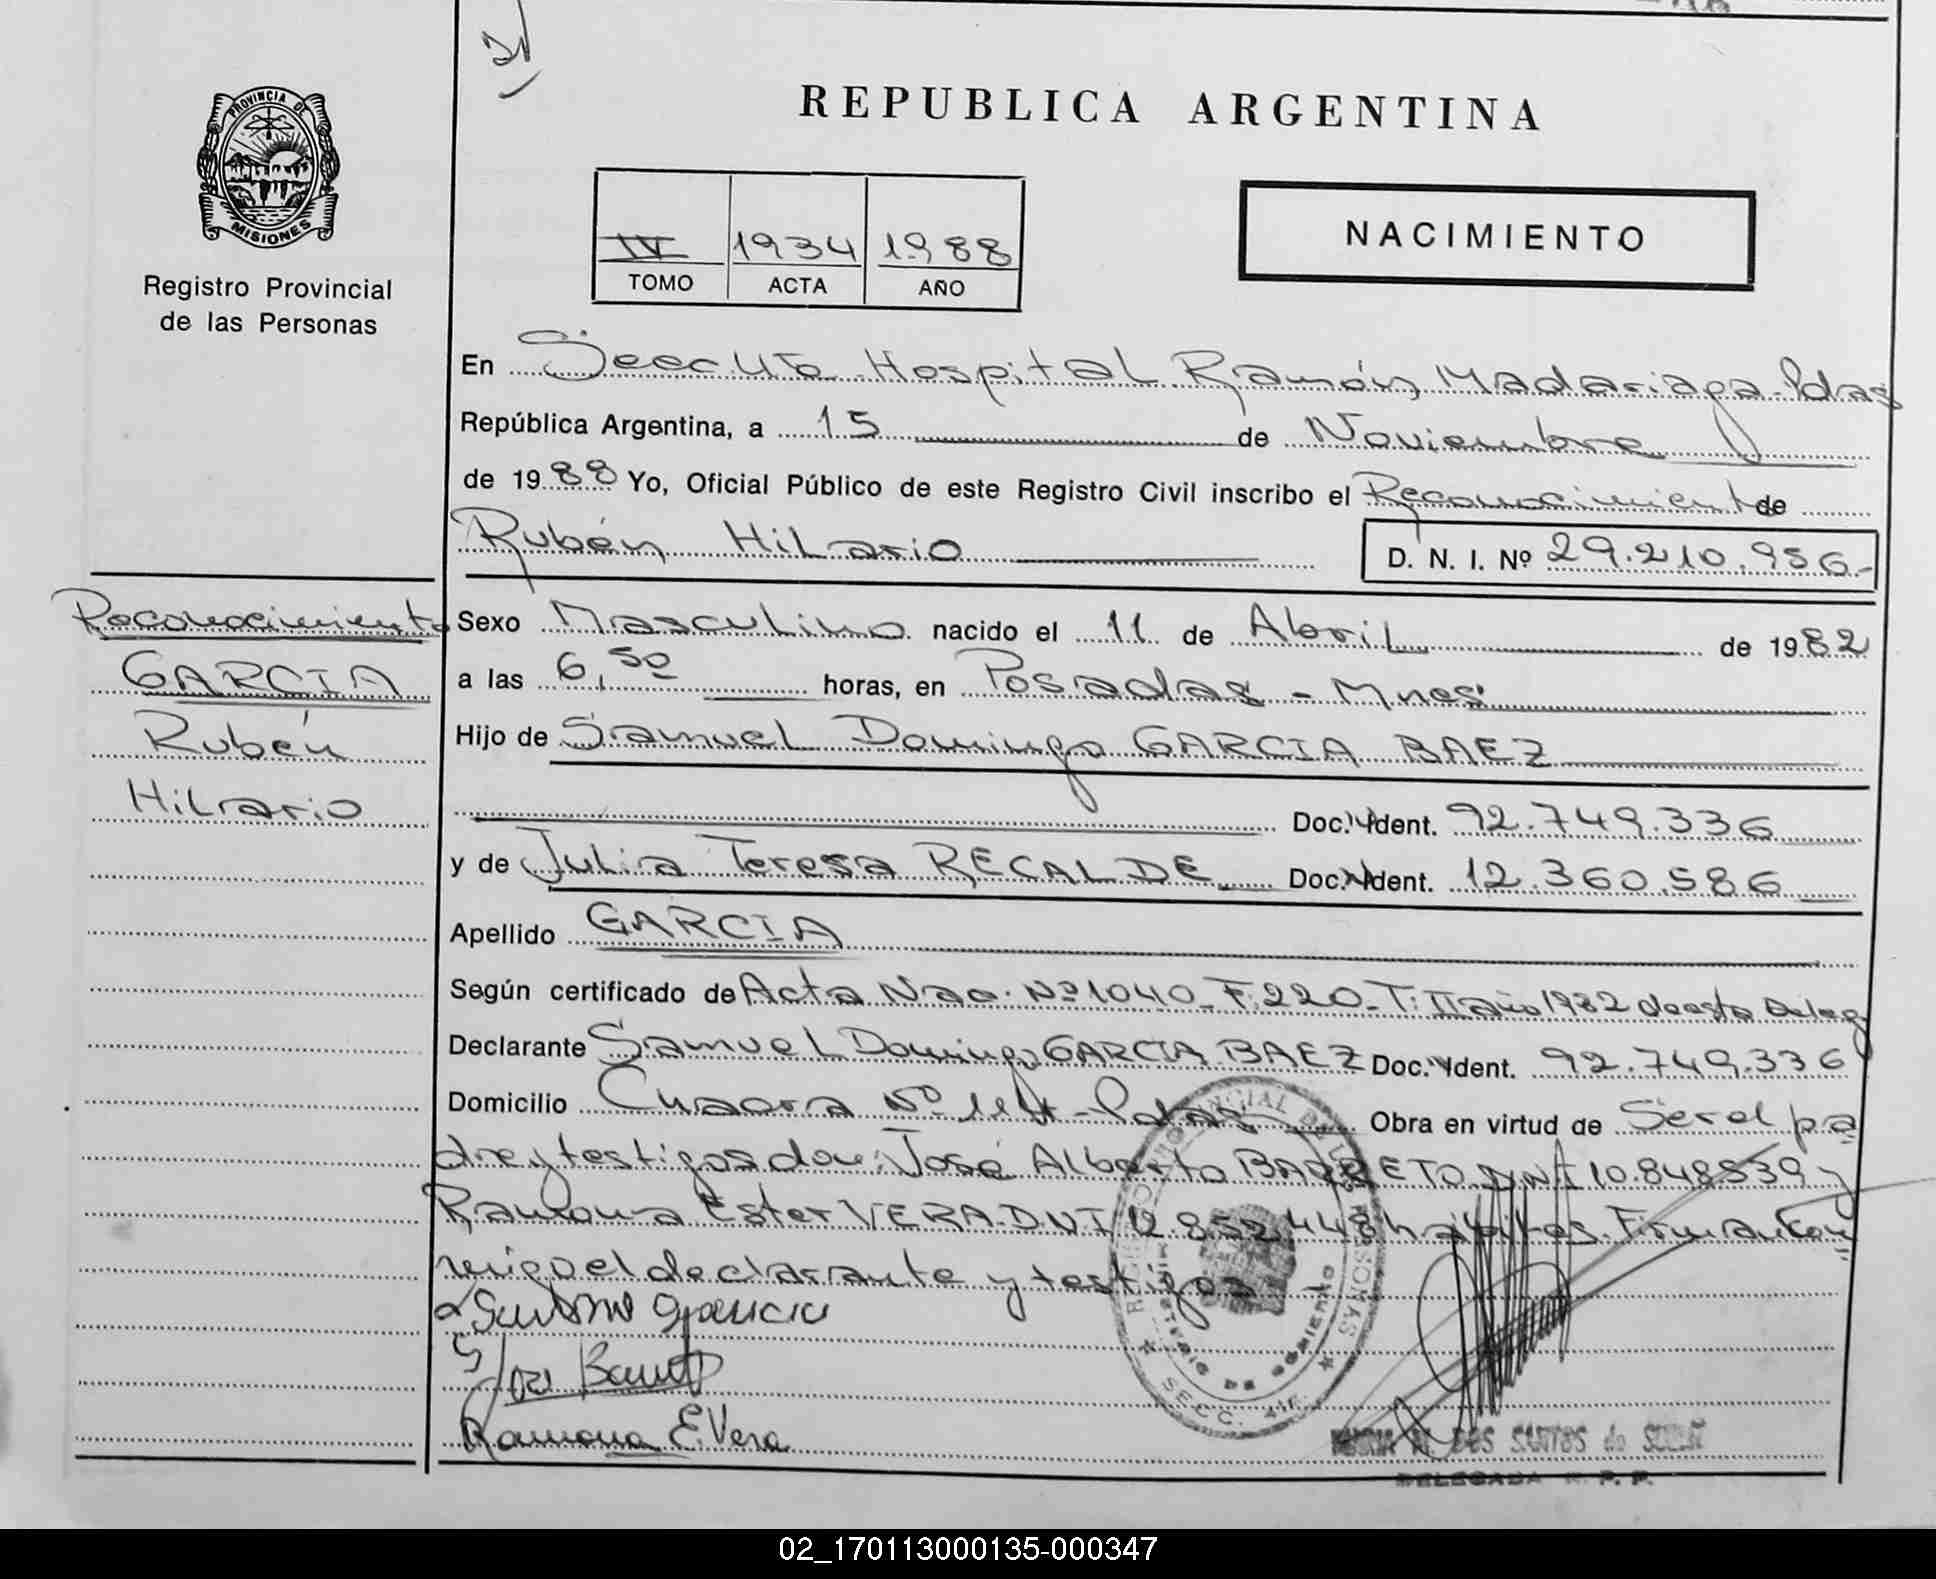 REPUBLICA ARGENTINA
PROVINCIA DE
MISIONES
Registro Provincial
de las Personas
IV 1934 1988
TOMO ACTA AÑO
NACIMIENTO
En Hospital Ramón Madariaga-Pdas
República Argentina, a 15 de Noviembre
de 1988 Yo, Oficial Público de este Registro Civil inscribo el Reconocimiento de
Rubén Hilario D. N. I. Nº 29.210.956.-
Reconocimiento
GARCIA
Rubén
Hilario
Sexo Masculino nacido el 11 de Abril de 1982
a las 6,50 horas, en Posadas - Mnes
Hijo de Samuel Domingo GARCIA BAEZ
Doc. Ident. 92.749.336
y de Julia Teresa RECALDE Doc. Ident. 12.360.586
Apellido GARCIA
Según certificado de Acta Nac. Nº 1040 - F: 220 - T: II año 1982 de esta Deleg
Declarante Samuel Domingo GARCIA BAEZ Doc. Ident. 92.749.336
Domicilio Chacra Nº Pdas Obra en virtud de Ser el pa
dre y testigos don: José Alberto BARRETO DNI 10.848.539 y
Ramona Ester VERA DNI 12.852.448 hábiles. Firman con
migo el declarante y testigos
Ramona E. Vera
MINISTERIO DE GOBIERNO
SECC.
DOS SANTOS de
DELEGADA R. P. P.
02_170113000135-000347